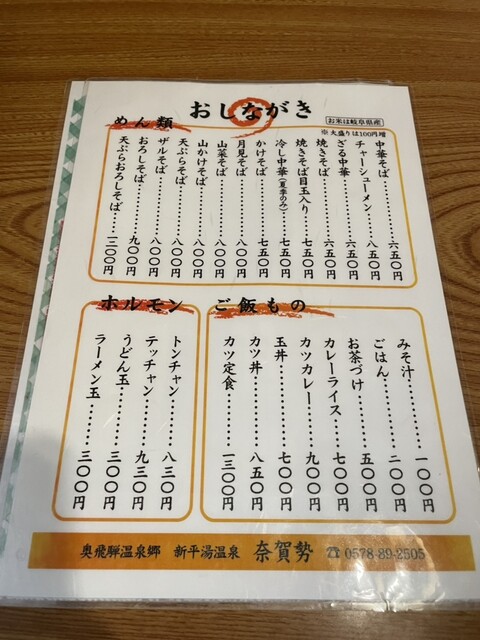 おしながき
お米は岐阜県産
※大盛りは100円増
めん類
中華そば………六五〇円
チャーシューメン………八五〇円
ざる中華………六五〇円
焼きそば………六五〇円
焼きそば目玉入り………七五〇円
冷し中華(夏季のみ)………七五〇円
かけそば………七五〇円
月見そば………八〇〇円
山菜そば………八〇〇円
山かけそば………八〇〇円
天ぷらそば………八〇〇円
ザルそば………八〇〇円
おろしそば………九〇〇円
天ぷらおろしそば………一一〇〇円
ご飯もの
みそ汁………一〇〇円
ごはん………二〇〇円
お茶づけ………五〇〇円
カレーライス………七〇〇円
カツカレー………九〇〇円
玉丼………七〇〇円
カツ丼………八五〇円
カツ定食………一三〇〇円
ホルモン
トンチャン………八三〇円
テッチャン………九三〇円
うどん玉………三〇〇円
ラーメン玉………三〇〇円
奥飛騨温泉郷 新平湯温泉 奈賀勢 ☎0578-89-2505